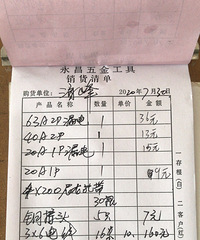 永昌五金工具
销货清单
购货单位: 2020年7月30日
产品名称 数量 单价 金额
63A2P漏电 1 36元
40A2P 1 13元
20A1P漏电 1 15元
20A1P 1 9元
30根
5只 7元
3×6电线 16米 10. 160元
一存根(白)
二客户(红)